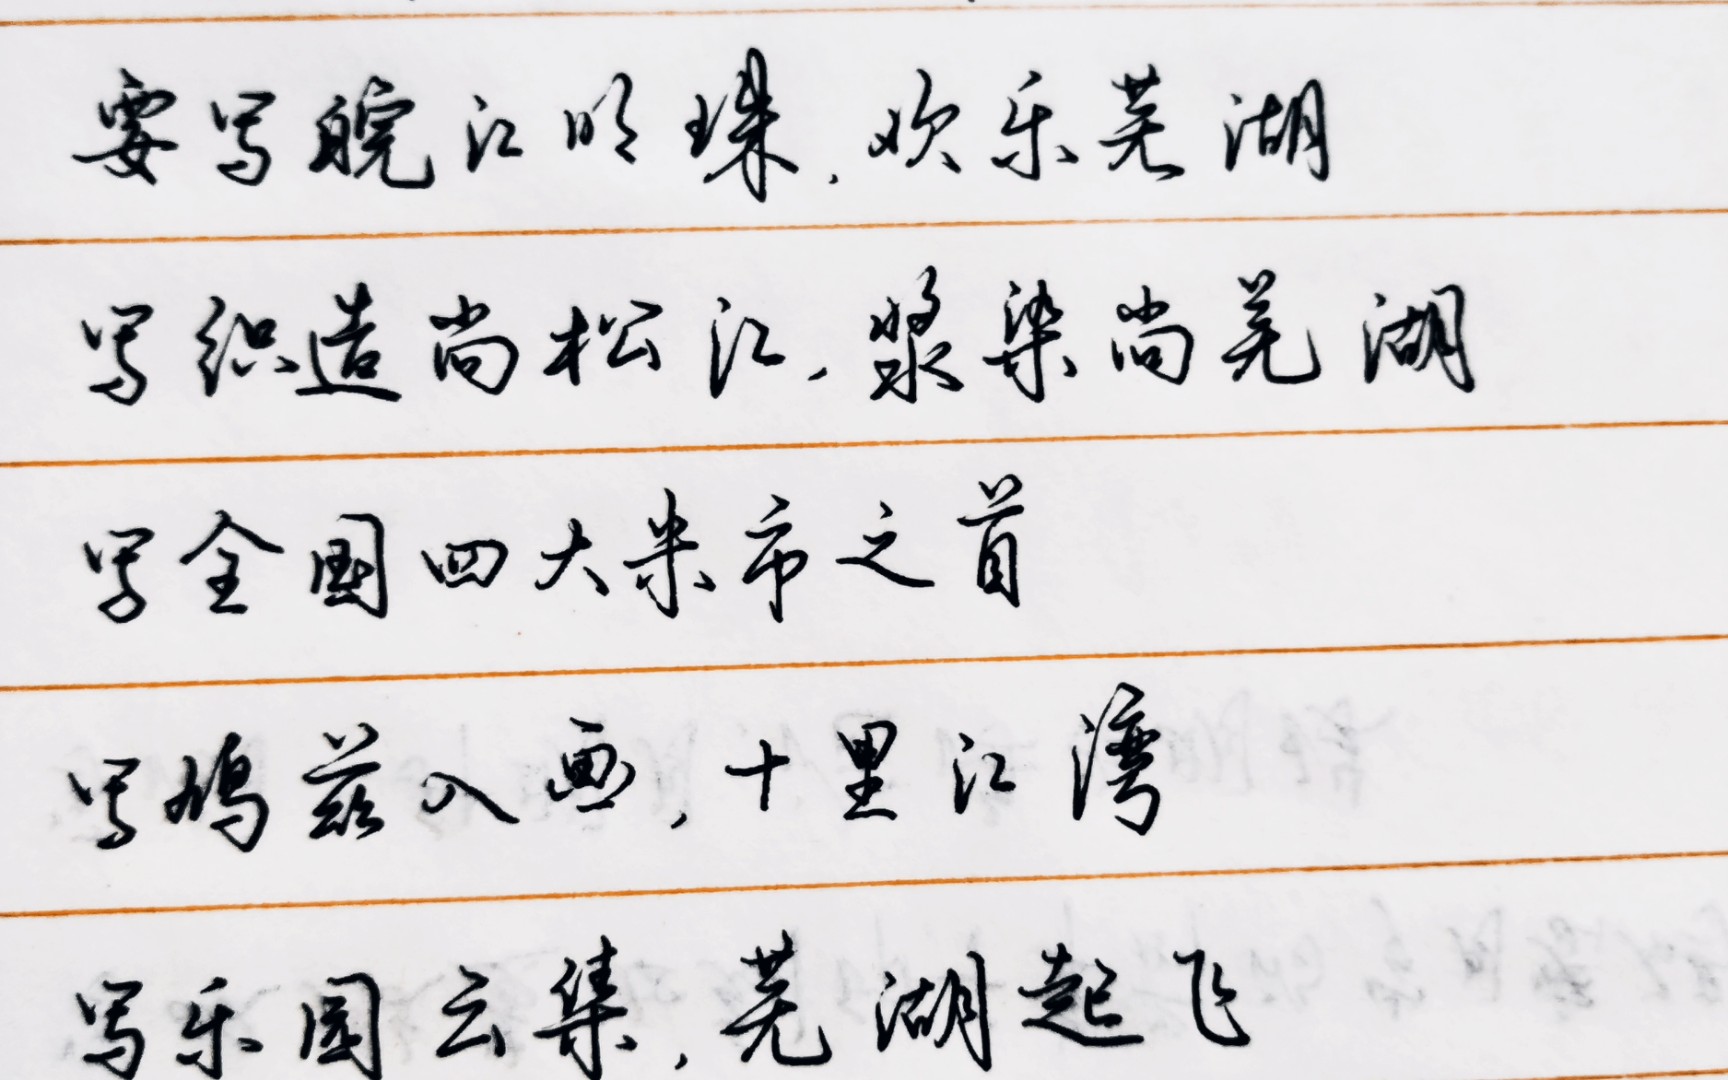 要写皖江明珠，欢乐芜湖
写织造尚松江，浆染尚芜湖
写全国四大米市之首
写鸠兹入画，十里江湾
写乐园云集，芜湖起飞